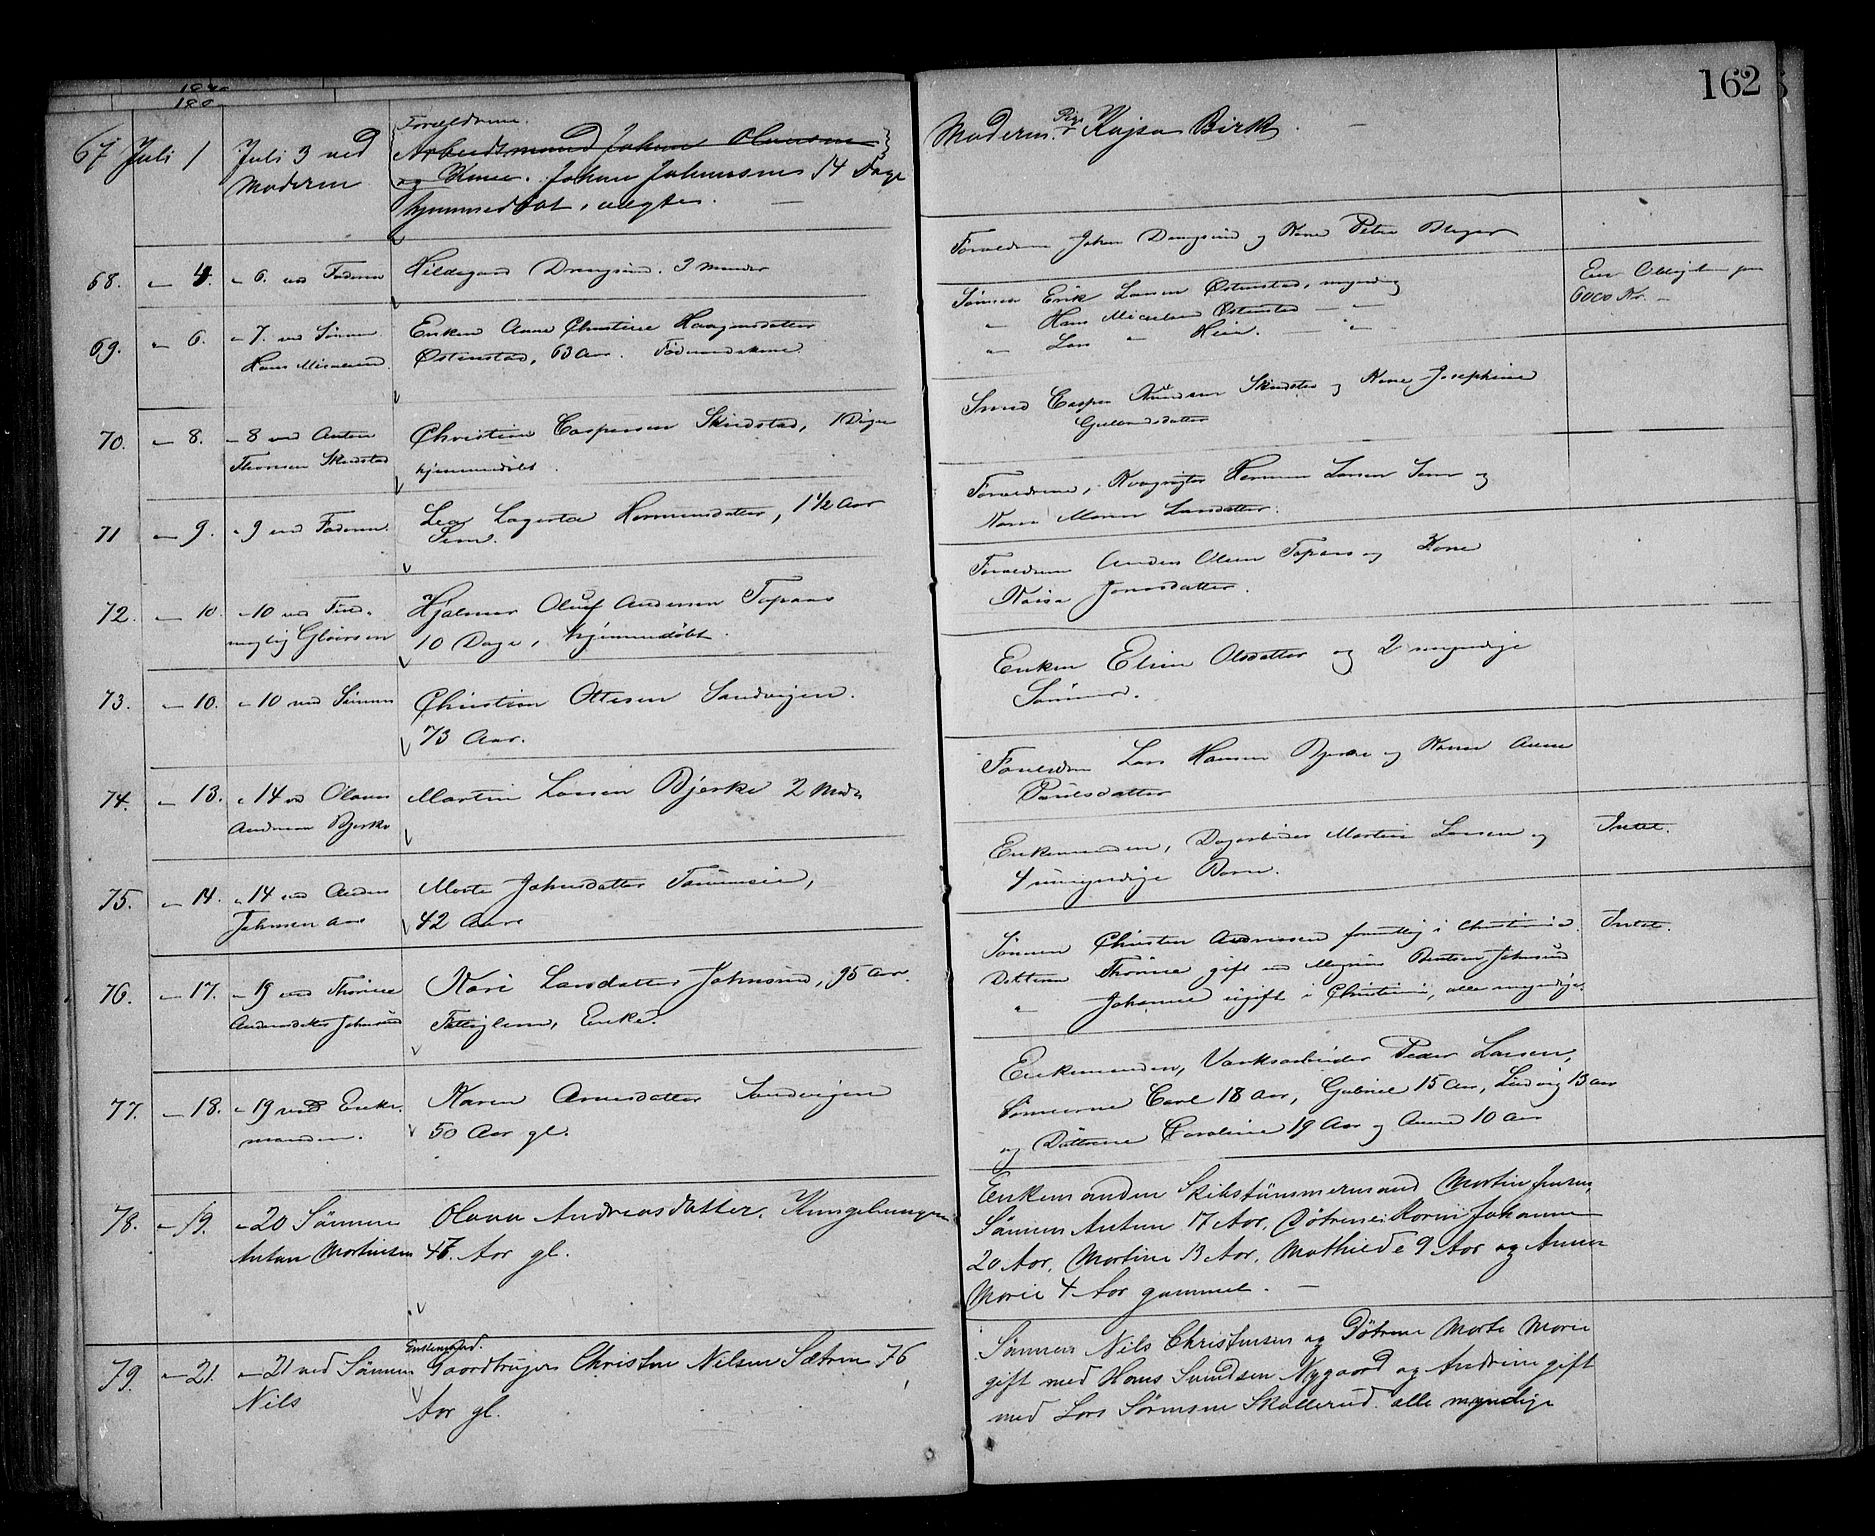 162
67 Juli 1 Juli 3 ved Forældrene. Moderen Kajsa Birk. —
Moderen Arbeidsmand Johan
og Kone. Johan Johannsen 14 Dage
hjemmedøbt, uægte. —
68. " 4. " 6. ved Faderen Hildegard Drengsrud. 3 Maneder Forældrene Johan Drengsrud og Kone Petra Meyer
69. " 6. " 7. ved Sønnen Enken Anne Christine Haagensdatter Sønnen Erik Larsen Østenstad, myndig Een Obligation paa
Hans Micaelsen Østenstad, 63 Aar. " Hans Micaelsen Østenstad — " — 6000 Kr. —
" Lars " Hein. — " —
70. " 8. " 8 ved Anton Christian Caspersen Skustad, 1 Dag Smed Casper Knudsen Skustad og Kone Josephine
Thoresen Skustad hjemmedøbt. Gulbrandsdatter
71 " 9. " 9 ved Faderen. Lea Lagerta Hermansdatter, 1½ Aar Forældrene, Herman Larsen Sem og
Sem. Kone Maren Larsdatter.
72. " 10. " 10 ved Hjalmar Oluf Andersen Topaas Forældrene Anders Olsen Topaas og Kone
Gløersen 10 Dage, hjemmedøbt. Kaisa Jonsdatter.
73. " 10. " 10 ved Sønnen Christian Ottesen Sandvigen. Enken Eline Olsdatter og 2 myndige
73 Aar. Sønner.
74. " 13. " 14 ved Olaus Martin Larsen Bjerke 2 Mdr. Forældre Lars Hansen Bjerke og Kone Anne
Andersen Bjerke Paulsdatter
75. " 14. " 14 ved Anders Marte Johnsdatter, Enkemanden, Dagarbeider Martin Larsen og Intet.
Johnsen Aas 42 Aar 4 umyndige Børn.
76. " 17. " 19 ved Thorine Kari Larsdatter Johnsrud, 95 Aar. Sønnen Christen Andreassen i Christiania. Intet.
Andersdatter Johnsrud Fattiglem, Enke. Datteren Thorine gift med Magnus Bentsen Johnsrud
" Johanne ugift i Christiania, alle myndige.
77. " 18. " 19 ved Enke- Karen Arnesdatter Sandvigen Enkemanden, Værksarbeider Peder Larsen,
manden. 50 Aar gl. Sønnerne Carl 18 Aar, Gabriel 15 Aar, Ludvig 13 Aar
og Døttrene Caroline 19 Aar og Anne 10 Aar
78. " 19. " 20 Sønnen Olava Andreasdatter. Enkemanden Skibstømmermand Martin Jensen,
Anton Martinsen 47 Aar gl. Sønnen Anton 17 Aar. Døtrene: Karin Johanne
20 Aar, Martine 13 Aar, Mathilde 9 Aar og Anne
Marie 4 Aar gammel. —
79. " 21. " 21 ved Sønnen Enkemand. Gaardbruger Christen Nilsen Sætren 76 Sønnen Nils Christensen og Døtrene Marte Marie
Nils Aar gl. gift med Hans Svendsen Nygaard og Andrine gift
med Lars Sørensen Skallerud. alle myndige